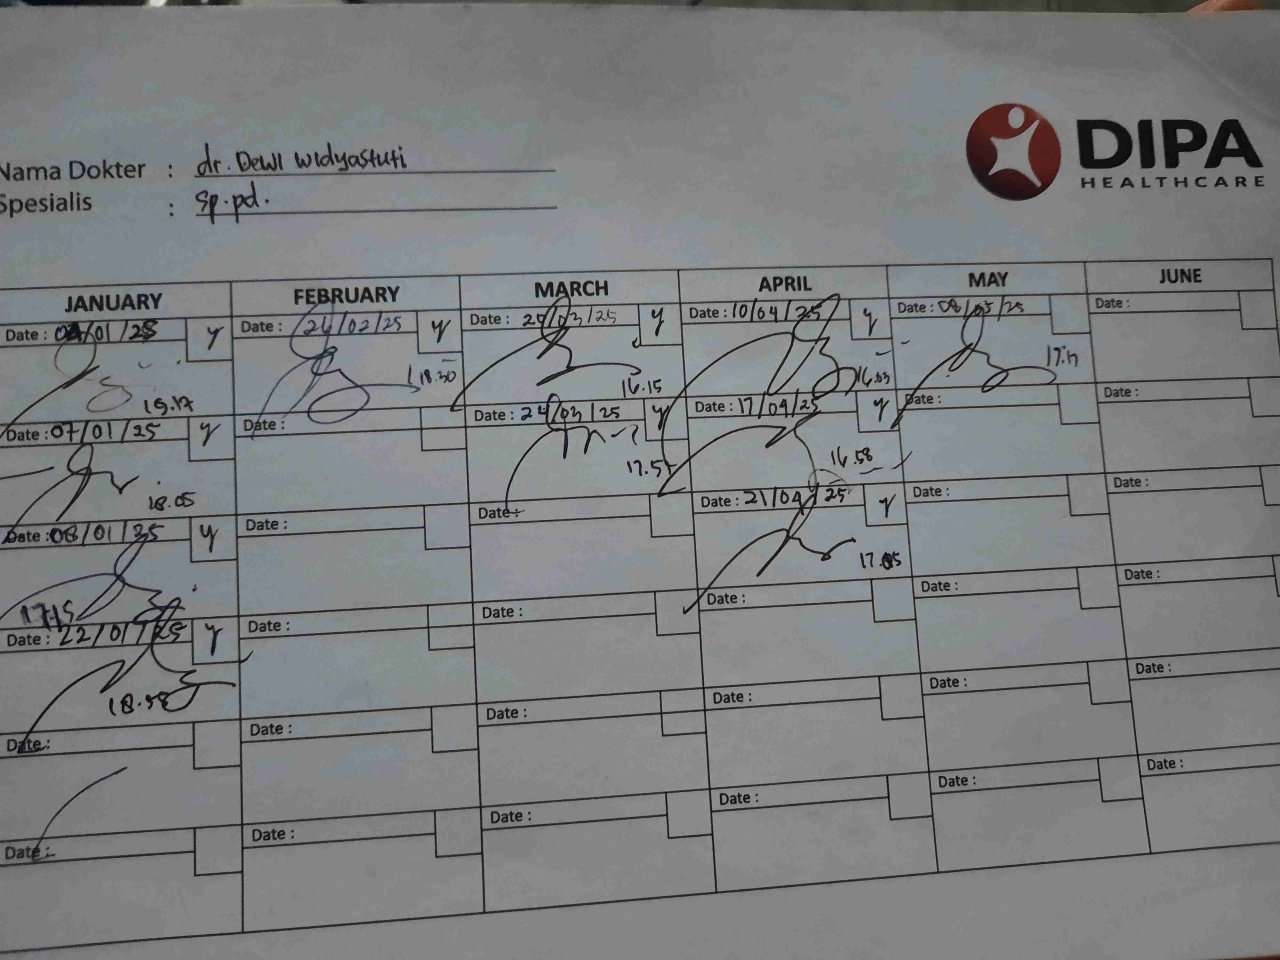 DIPA
HEALTHCARE
Nama Dokter : dr. Dewi Widyastuti
Spesialis : Sp.pd.
JANUARY FEBRUARY MARCH APRIL MAY JUNE
Date : /01/25 y Date : 26/02/25 y Date : 20/03/25 y Date : 10/04/25 y Date : 08/05/25 Date :
15.17 18.30 16.15 16.03 17.17
Date : 07/01/25 y Date : Date : 24/03/25 y Date : 17/04/25 y Date : Date :
18.05 17.57 16.58
Date : 08/01/25 y Date : Date : Date : 21/04/25 y Date : Date :
17.15 17.05
Date : 22/01/25 y Date : Date : Date : Date : Date :
18.58
Date : Date : Date : Date : Date : Date :
Date : Date : Date : Date : Date : Date :